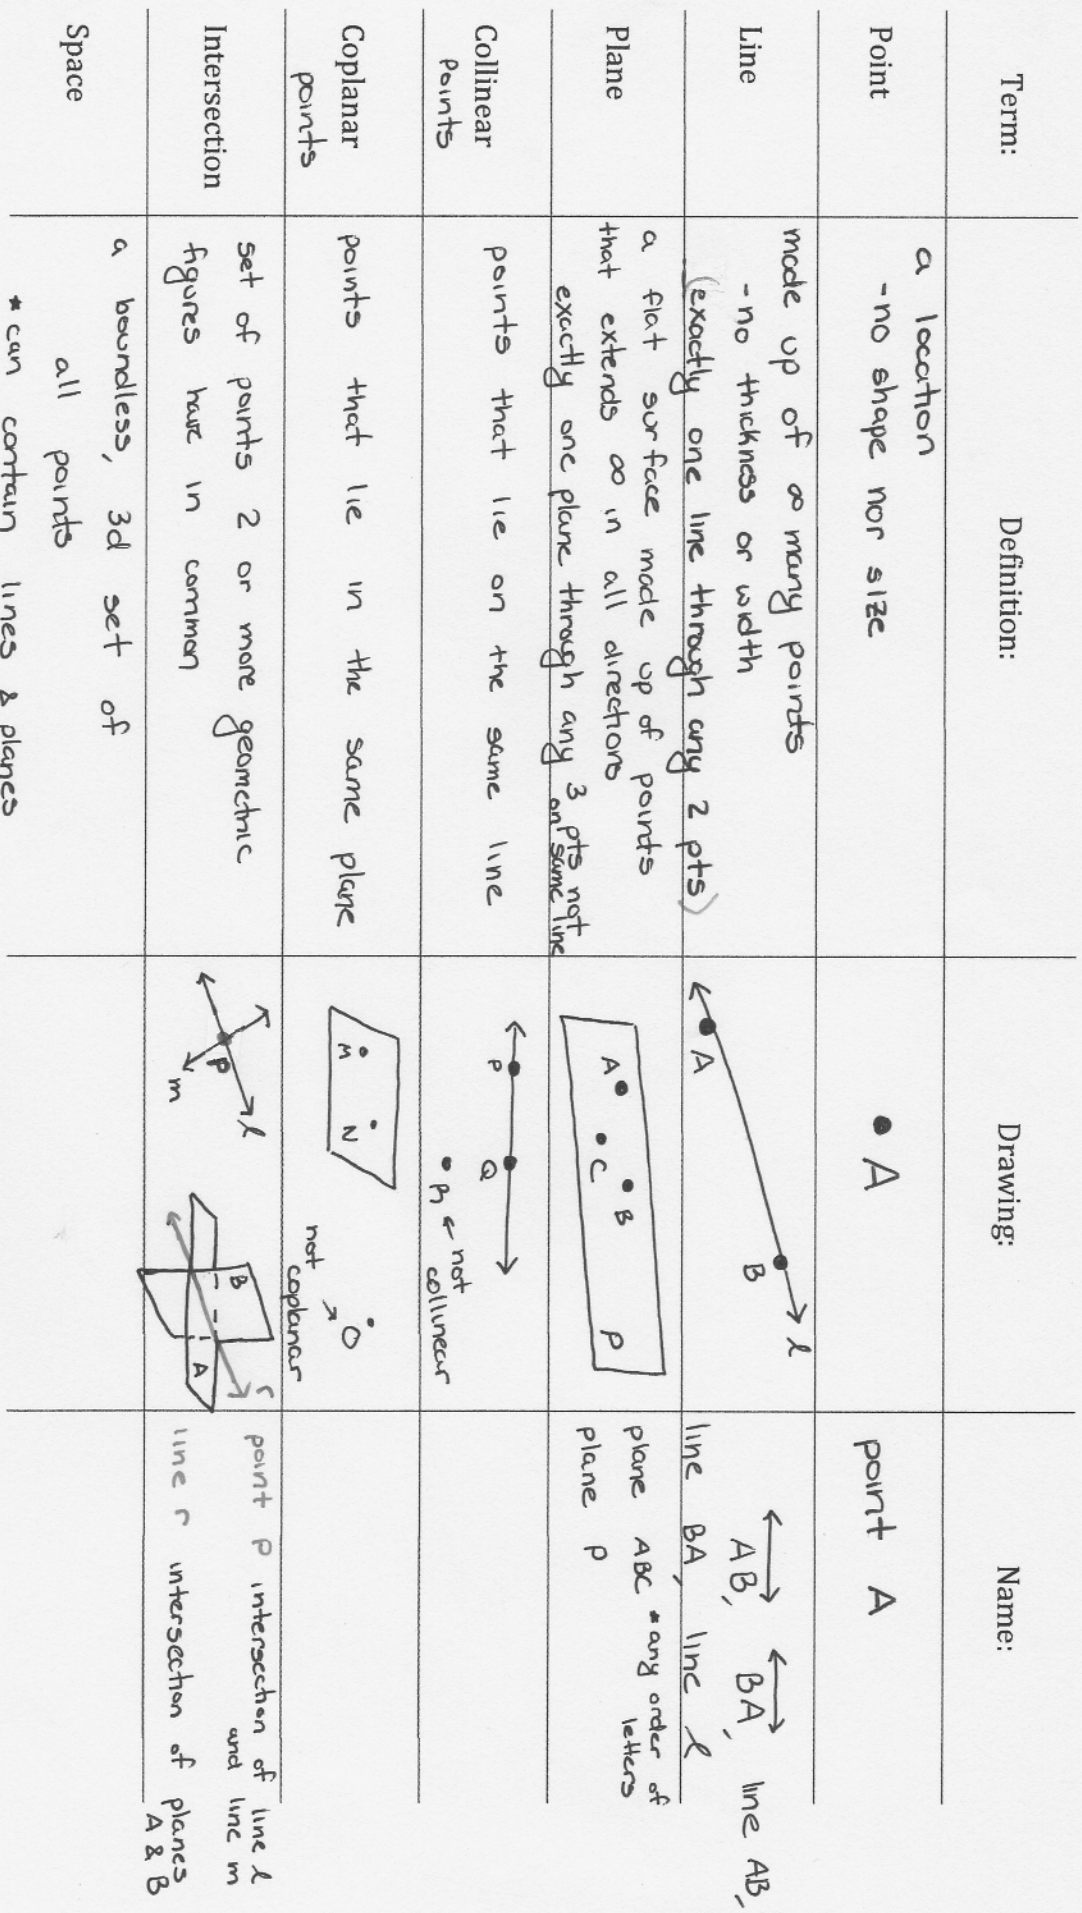 Term:
Definition:
Drawing:
Name:
Point
a location
- no shape nor size
A
point A
Line
made up of ∞ many points
- no thickness or width
(exactly one line through any 2 pts)
A
B
l
AB, BA, line AB,
line BA, line l
Plane
a flat surface made up of points
that extends ∞ in all directions
exactly one plane through any 3 pts not
on same line
A
B
C
P
plane ABC *any order of
letters
plane P
Collinear
points
points that lie on the same line
P
Q
R ← not
collinear
Coplanar
points
points that lie in the same plane
M
N
O
not
coplanar
Intersection
set of points 2 or more geometric
figures have in common
P
l
m
B
A
r
point P intersection of line l
and line m
line r intersection of planes
A & B
Space
a boundless, 3d set of
all points
* can contain lines & planes